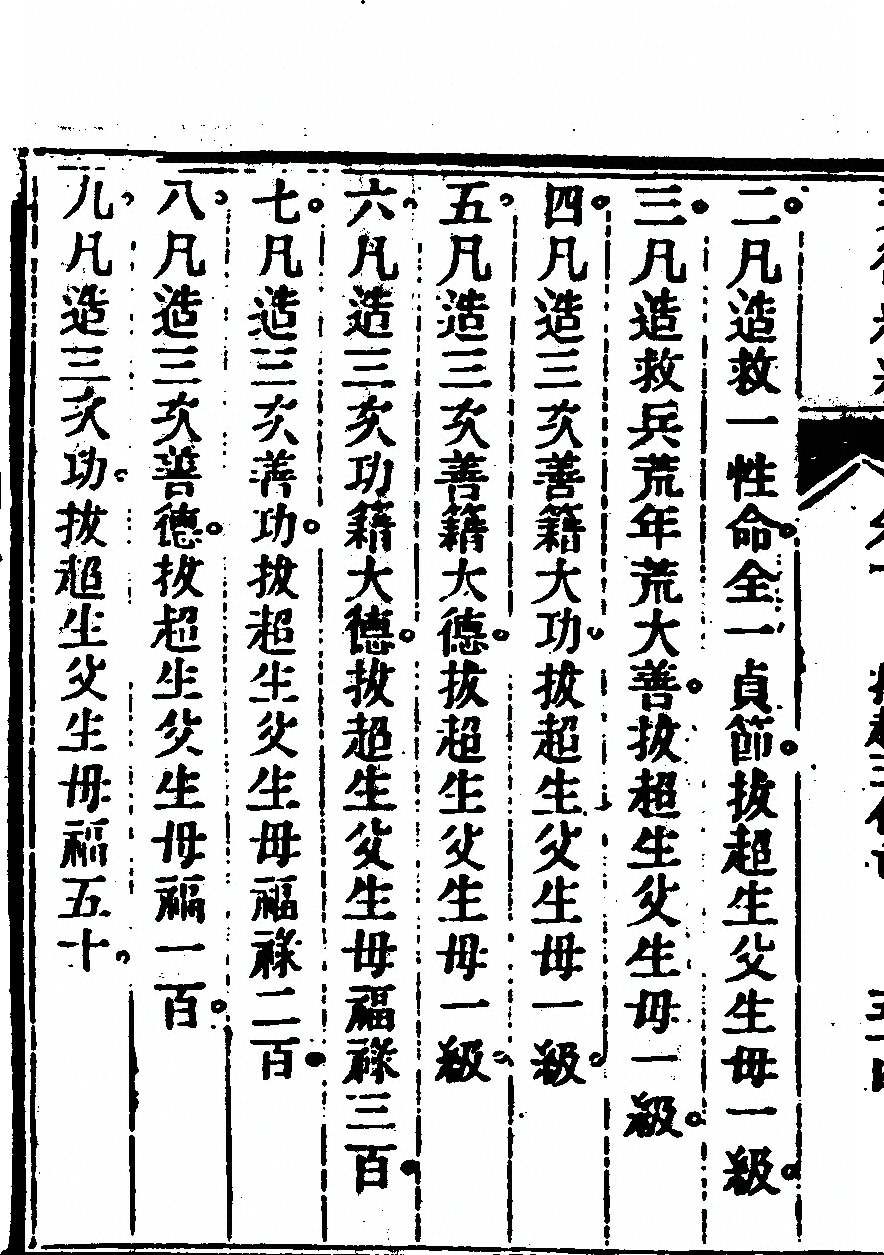 二。凡造救一性命。全一貞節。拔超生父生母一級。
三。凡造救兵荒年荒大善。拔超生父生母一級。
四。凡造三次善籍大功。拔超生父生母一級。
五。凡造三次善籍大德。拔超生父生母一級。
六。凡造三次功籍大德。拔超生父生母福祿三百。
七。凡造三次善功。拔超生父生母福祿二百。
八。凡造三次善德。拔超生父生母福一百。
九。凡造三次功。拔超生父生母福五十。